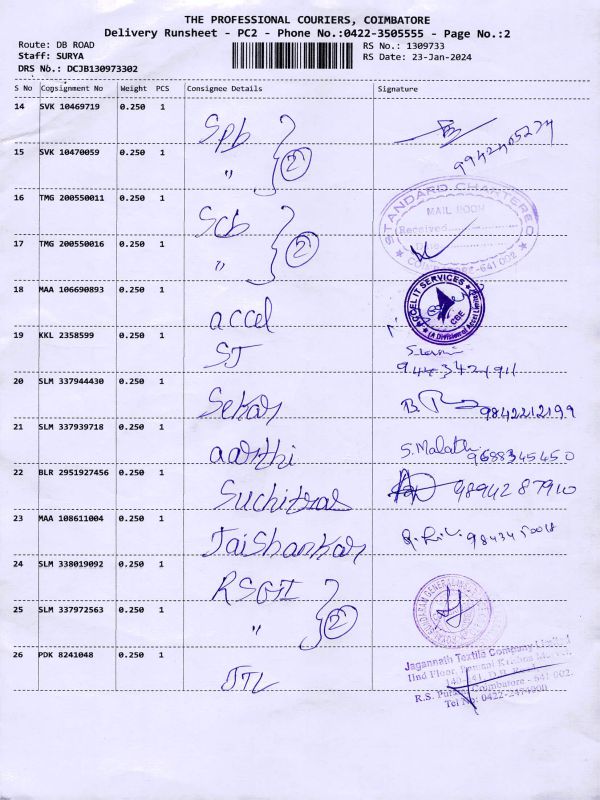 THE PROFESSIONAL COURIERS, COIMBATORE
Delivery Runsheet - PC2 - Phone No.:0422-3505555 - Page No.:2
Route: DB ROAD RS No.: 1309733
Staff: SURYA RS Date: 23-Jan-2024
DRS No.: DCJB130973302
S No Consignment No Weight PCS Consignee Details Signature
14 SVK 10469719 0.250 1 Spb
9942405274
15 SVK 10470059 0.250 1 " 2
16 TMG 200550011 0.250 1 Scb
STANDARD CHARTERED
MAIL ROOM
Received
17 TMG 200550016 0.250 1 " 2
641 002
18 MAA 106690893 0.250 1 accel
ACCEL IT SERVICES
CBE
(A Division of Accel Limited)
19 KKL 2358599 0.250 1 SJ
20 SLM 337944430 0.250 1 Sekar
9842212199
21 SLM 337939718 0.250 1 aarthi
S. Malathi
9688345450
22 BLR 2951927456 0.250 1 Suchitra
9894287910
23 MAA 108611004 0.250 1 Jaishankar
24 SLM 338019092 0.250 1 RSGI
25 SLM 337972563 0.250 1 " 2
26 PDK 8241048 0.250 1 JTL
Jagannath Textile Company Limited
IInd Floor,
R.S. Puram, Coimbatore - 641 002.
Tel No: 0422-2474000